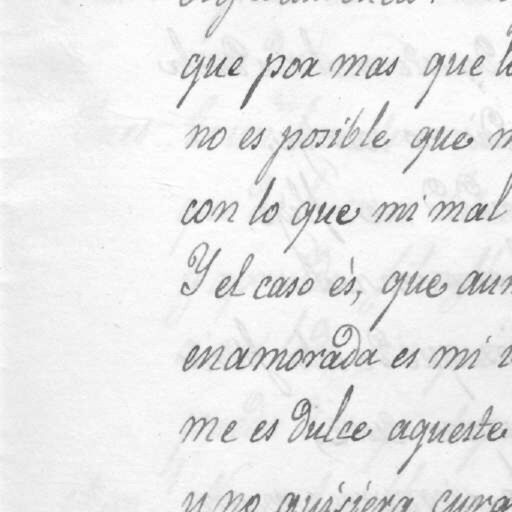 que por mas que l
no es posible que m
con lo que mi mal
Y el caso és, que aun
enamorada es mi
me es dulce aqueste
y no quisiera cura